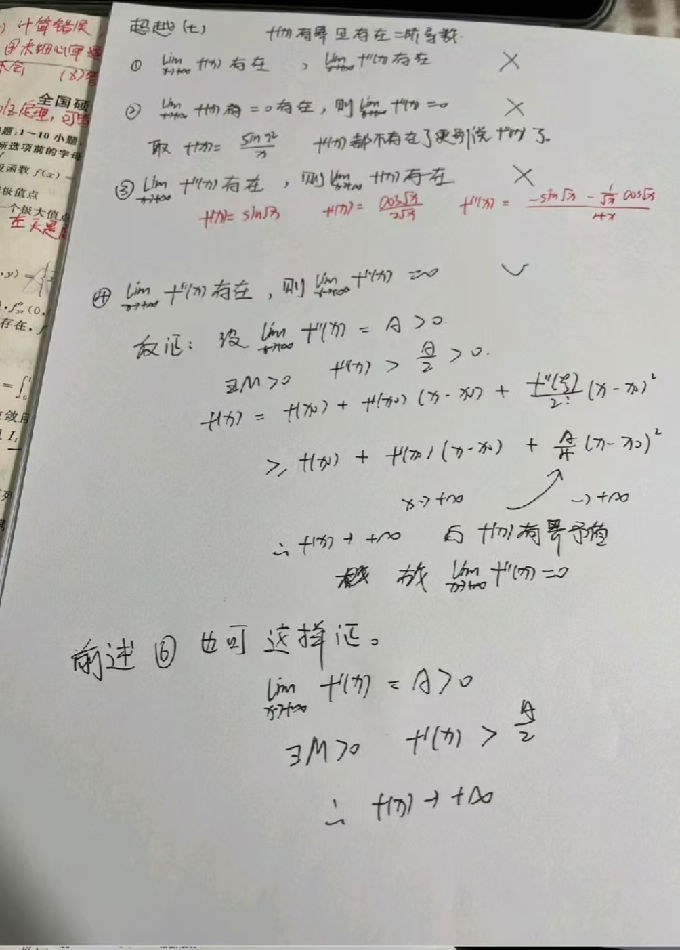 计算错误
全国硕
题:1~10小题
所选项前的字母
函数 f(x)
极值点
一个极大值点
存在,f
超越(七) f(x)有界且存在二阶导数.
① lim x→+∞ f(x)存在, lim x→+∞ f''(x)存在 ×
② lim x→+∞ f(x)有=0存在,则 lim x→+∞ f'(x)=0 ×
取 f(x)= sin x² / x f'(x)都不存在了更别说f''(x)了.
③ lim x→+∞ f''(x)存在,则 lim x→+∞ f(x)存在 ×
f(x)= sin√x f'(x)= cos√x / 2√x f''(x)= (-sin√x - 1/√x cos√x) / 4x
④ lim x→+∞ f''(x)存在,则 lim x→+∞ f''(x)=0 ✓
反证: 设 lim x→+∞ f''(x) = A>0.
∃M>0 f''(x) > A/2 >0.
f(x) = f(x₀) + f'(x₀)(x-x₀) + f''(ξ)/2! (x-x₀)²
≥ f(x₀) + f'(x₀)(x-x₀) + A/4 (x-x₀)²
x→+∞ →+∞
∴ f(x)→+∞ 与 f(x)有界矛盾
故 lim x→+∞ f''(x)=0
前述⑥也可这样证。
lim x→+∞ f'(x) = A>0
∃M>0 f'(x) > A/2
∴ f(x)→+∞